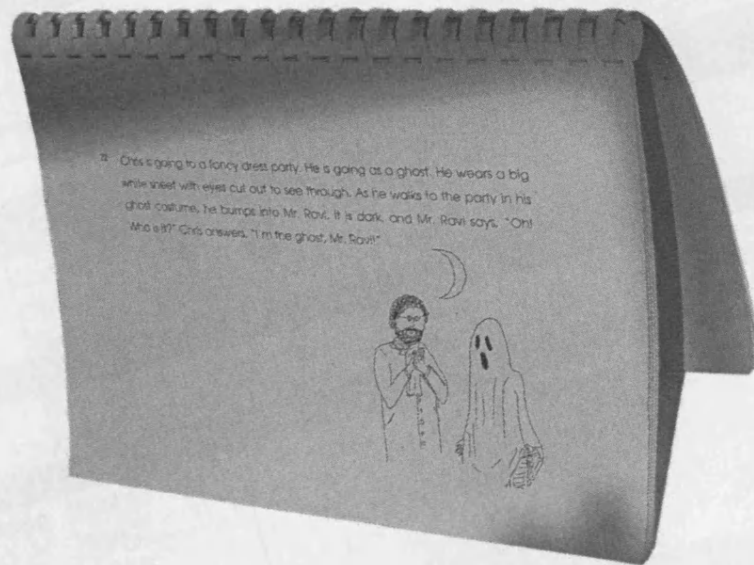 22 Chris is going to a fancy dress party. He is going as a ghost. He wears a big
white sheet with eyes cut out to see through. As he walks to the party in his
ghost costume, he bumps into Mr. Ravi. It is dark, and Mr. Ravi says, "Oh!
Who is it?" Chris answers, "I'm the ghost, Mr. Ravi!"